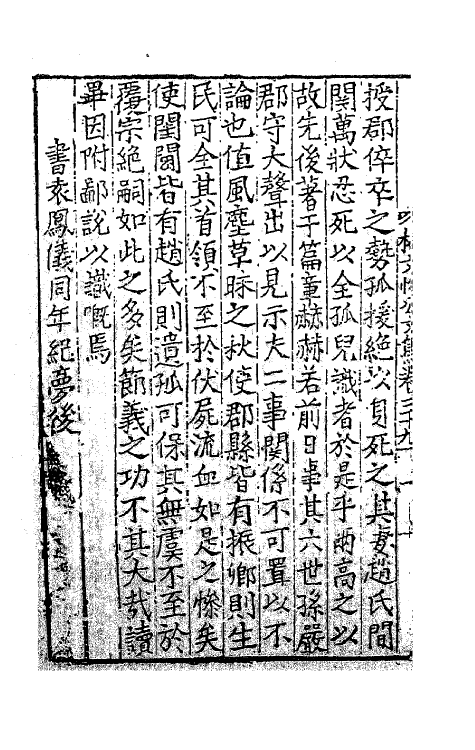 授郡倅卒之勢孤援絶以身死之其妻趙氏間
関萬狀忍死以全孤兒識者於是乎兩高之以
故先後著于篇章赫赫若前日事其六世孫嚴
郡守大聲出以見示夫二事關係不可置以不
論也值風塵草昧之秋使郡縣皆有振卿則生
民可全其首領不至於伏屍流血如是之慘矣
使閨閫皆有趙氏則遺孤可保其無虞不至於
覆宗絶嗣如此之多矣節義之功不其大哉讀
畢因附鄙說以識嘅焉
書袁鳳儀同年紀夢後
文集卷二十九